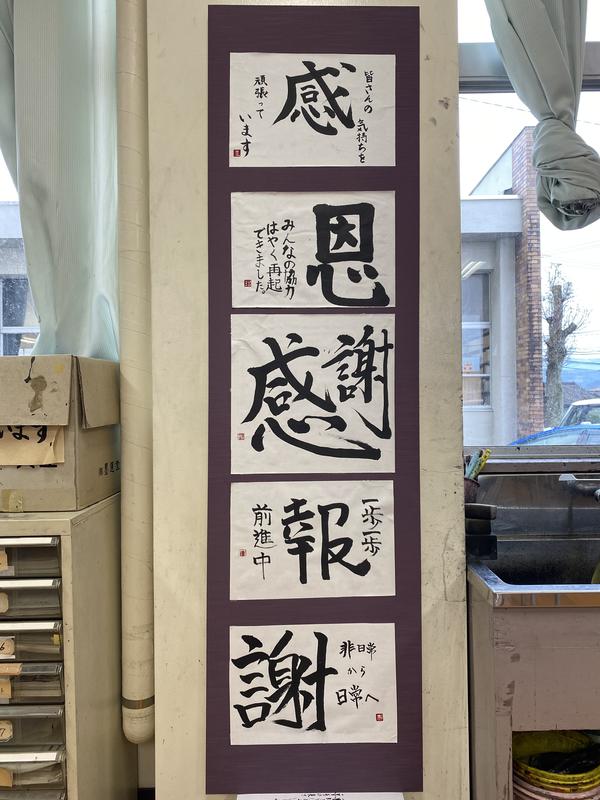 皆さんの
気持ちを
感
頑張って
います
恩
みんなの協力
はやく再起
できました。
感謝
一歩一歩
報
前進中
非日常
から
日常へ
謝
ます
6
7